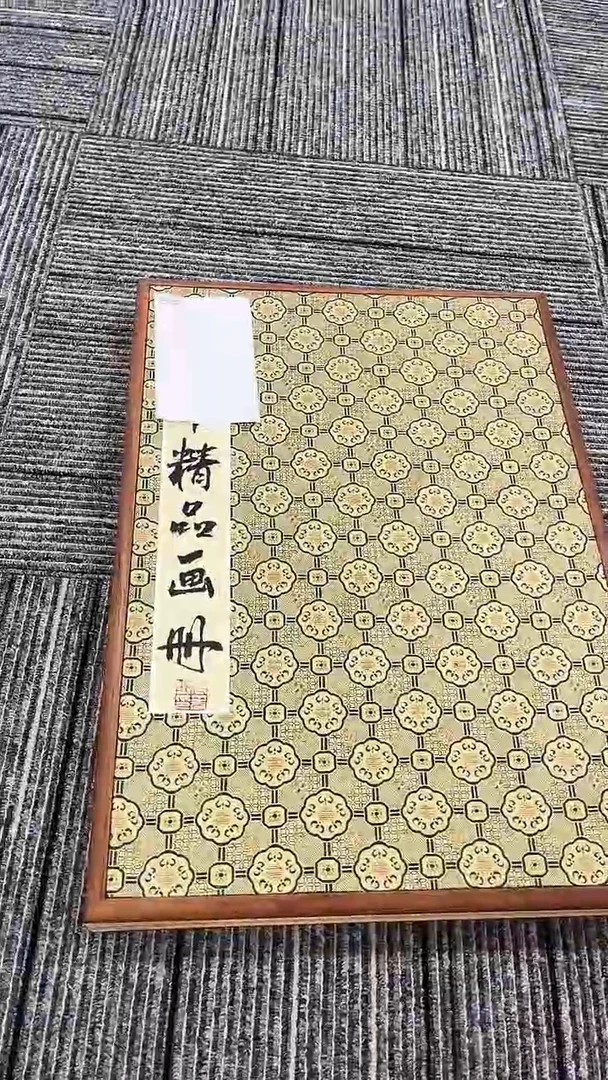 精品画册